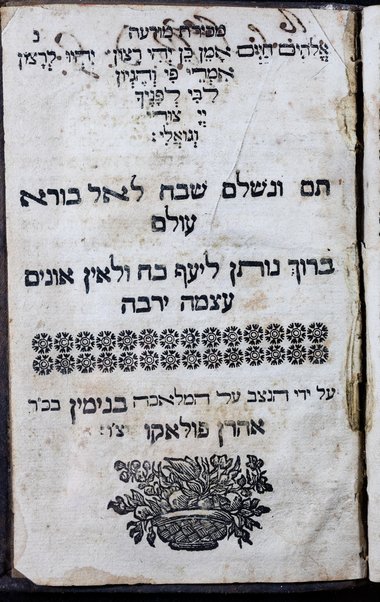 מכירת מודעה
נ
אֱלֹהִים חַיִּים אָמֵן כֵּן יְהִי רָצוֹן יִהְיוּ לְרָצוֹן
אִמְרֵי פִי וְהֶגְיוֹן
לִבִּי לְפָנֶיךָ
יְיָ צוּרִי
וְגוֹאֲלִי:
תם ונשלם שבח לאל בורא
עולם
ברוך נותן ליעף כח ולאין אונים
עצמה ירבה
על ידי הנצב על המלאכה בנימין בכ"ר
אהרן פולאקו יצ"ו